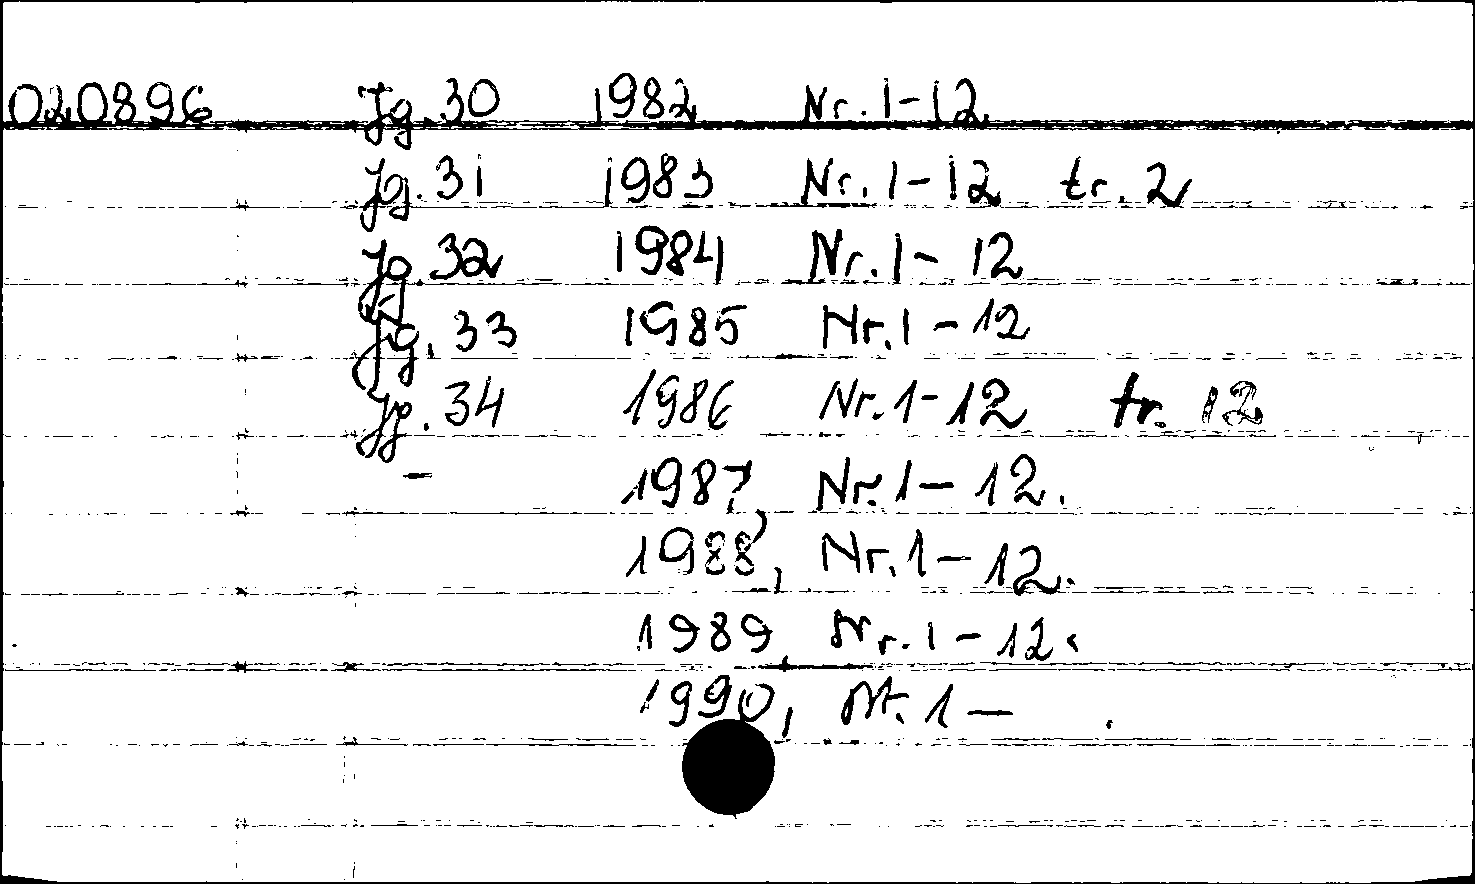 020896 Jg. 30 1982 Nr. 1-12
Jg. 31 1983 Nr. 1-12 tr. 2
Jg. 32 1984 Nr. 1-12
Jg. 33 1985 Nr. 1-12
Jg. 34 1986 Nr. 1-12 tr. 12
- 1987, Nr. 1-12.
1988, Nr. 1-12.
1989, Nr. 1-12.
1990, Nr. 1-